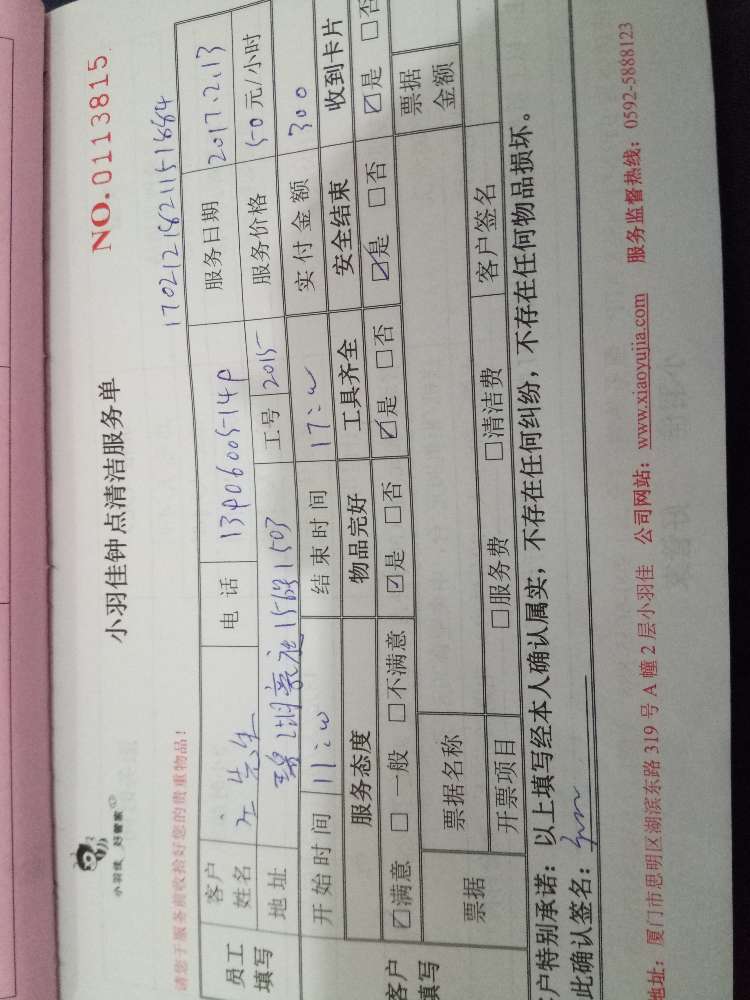 小羽佳 好管家
小羽佳钟点清洁服务单
NO.0113815
请您于服务前收拾好您的贵重物品!
1702121821151884
员工填写
客户姓名 先生 电话 服务日期 2017.2.13
地址 碧湖豪庭 1503 工号 2015 服务价格 50 元/小时
开始时间 11:00 结束时间 17:00 实付金额 300
客户填写
服务态度 物品完好 工具齐全 安全结束 收到卡片
☑满意 □一般 □不满意 ☑是 □否 ☑是 □否 ☑是 □否 ☑是 □否
票据 票据名称 票据金额
开票项目 □服务费 □清洁费 客户签名
户特别承诺:以上填写经本人确认属实,不存在任何纠纷,不存在任何物品损坏。
此确认签名:
地址:厦门市思明区湖滨东路 319 号 A 幢 2 层小羽佳 公司网站:www.xiaoyujia.com 服务监督热线:0592-5888123